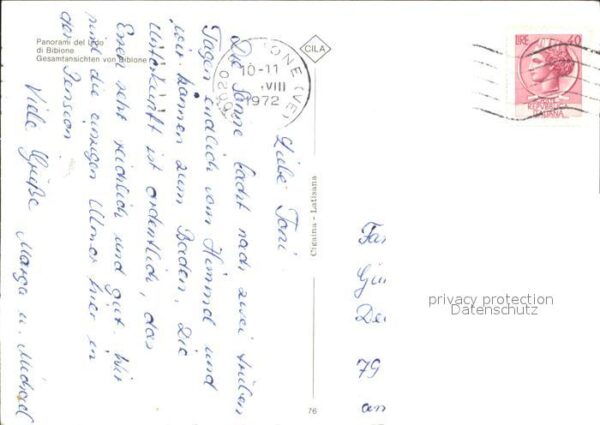 Panorami del Lido
di Bibione
Gesamtansichten von Bibione
CILA
BIBIONE (VE)
30020
10-11
VIII
1972
LIRE 40
REPUBBLICA
ITALIANA
Liebe Toni
Die Sonne lacht nach zwei trüben
Tagen endlich vom Himmel und
wir können zum Baden. Die
Unterkunft ist ordentlich, das
Essen sehr reichlich und gut. Wir
sind die einzigen Ulmer hier in
der Pension
Viele Grüße
Marga u. Michael
Cigaina - Latisana
76
Fa
Gün
De
79
am
privacy protection
Datenschutz